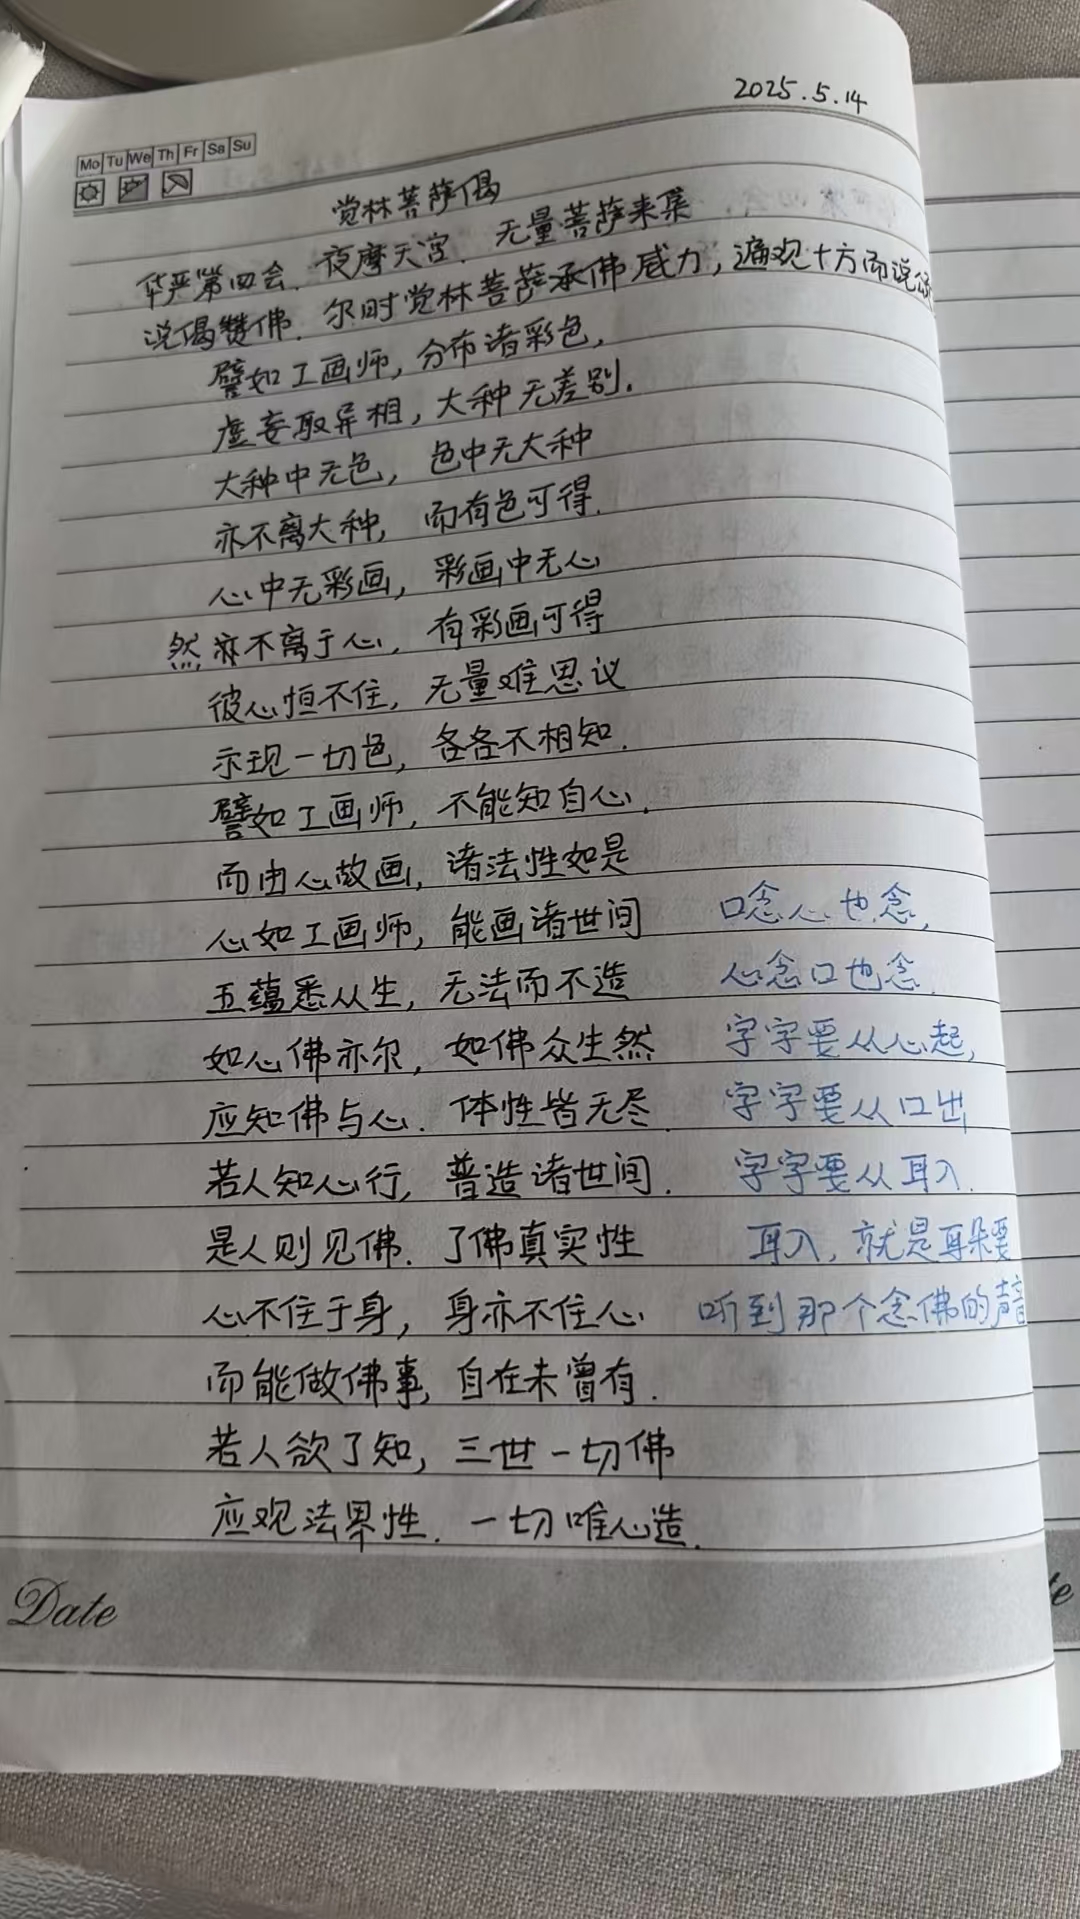 2025.5.14
Mo Tu We Th Fr Sa Su
觉林菩萨偈
华严第四会、夜摩天宫、无量菩萨来集
说偈赞佛、尔时觉林菩萨承佛威力，遍观十方而说颂
譬如工画师，分布诸彩色，
虚妄取异相，大种无差别．
大种中无色， 色中无大种
亦不离大种， 而有色可得．
心中无彩画， 彩画中无心
然亦不离于心， 有彩画可得
彼心恒不住，无量难思议
示现一切色，各各不相知．
譬如工画师，不能知自心．
而由心故画，诸法性如是
心如工画师，能画诸世间 口念心也念，
五蕴悉从生，无法而不造 心念口也念．
如心佛亦尔，如佛众生然 字字要从心起，
应知佛与心．体性皆无尽． 字字要从口出
若人知心行，普造诸世间． 字字要从耳入．
是人则见佛．了佛真实性 耳入，就是耳朵要
心不住于身，身亦不住心 听到那个念佛的声音
而能做佛事，自在未曾有．
若人欲了知，三世一切佛
应观法界性．一切唯心造．
Date